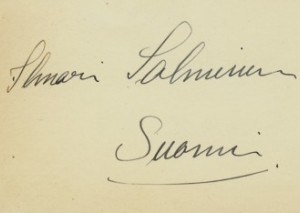 Ilmari Salminen
Suomi.